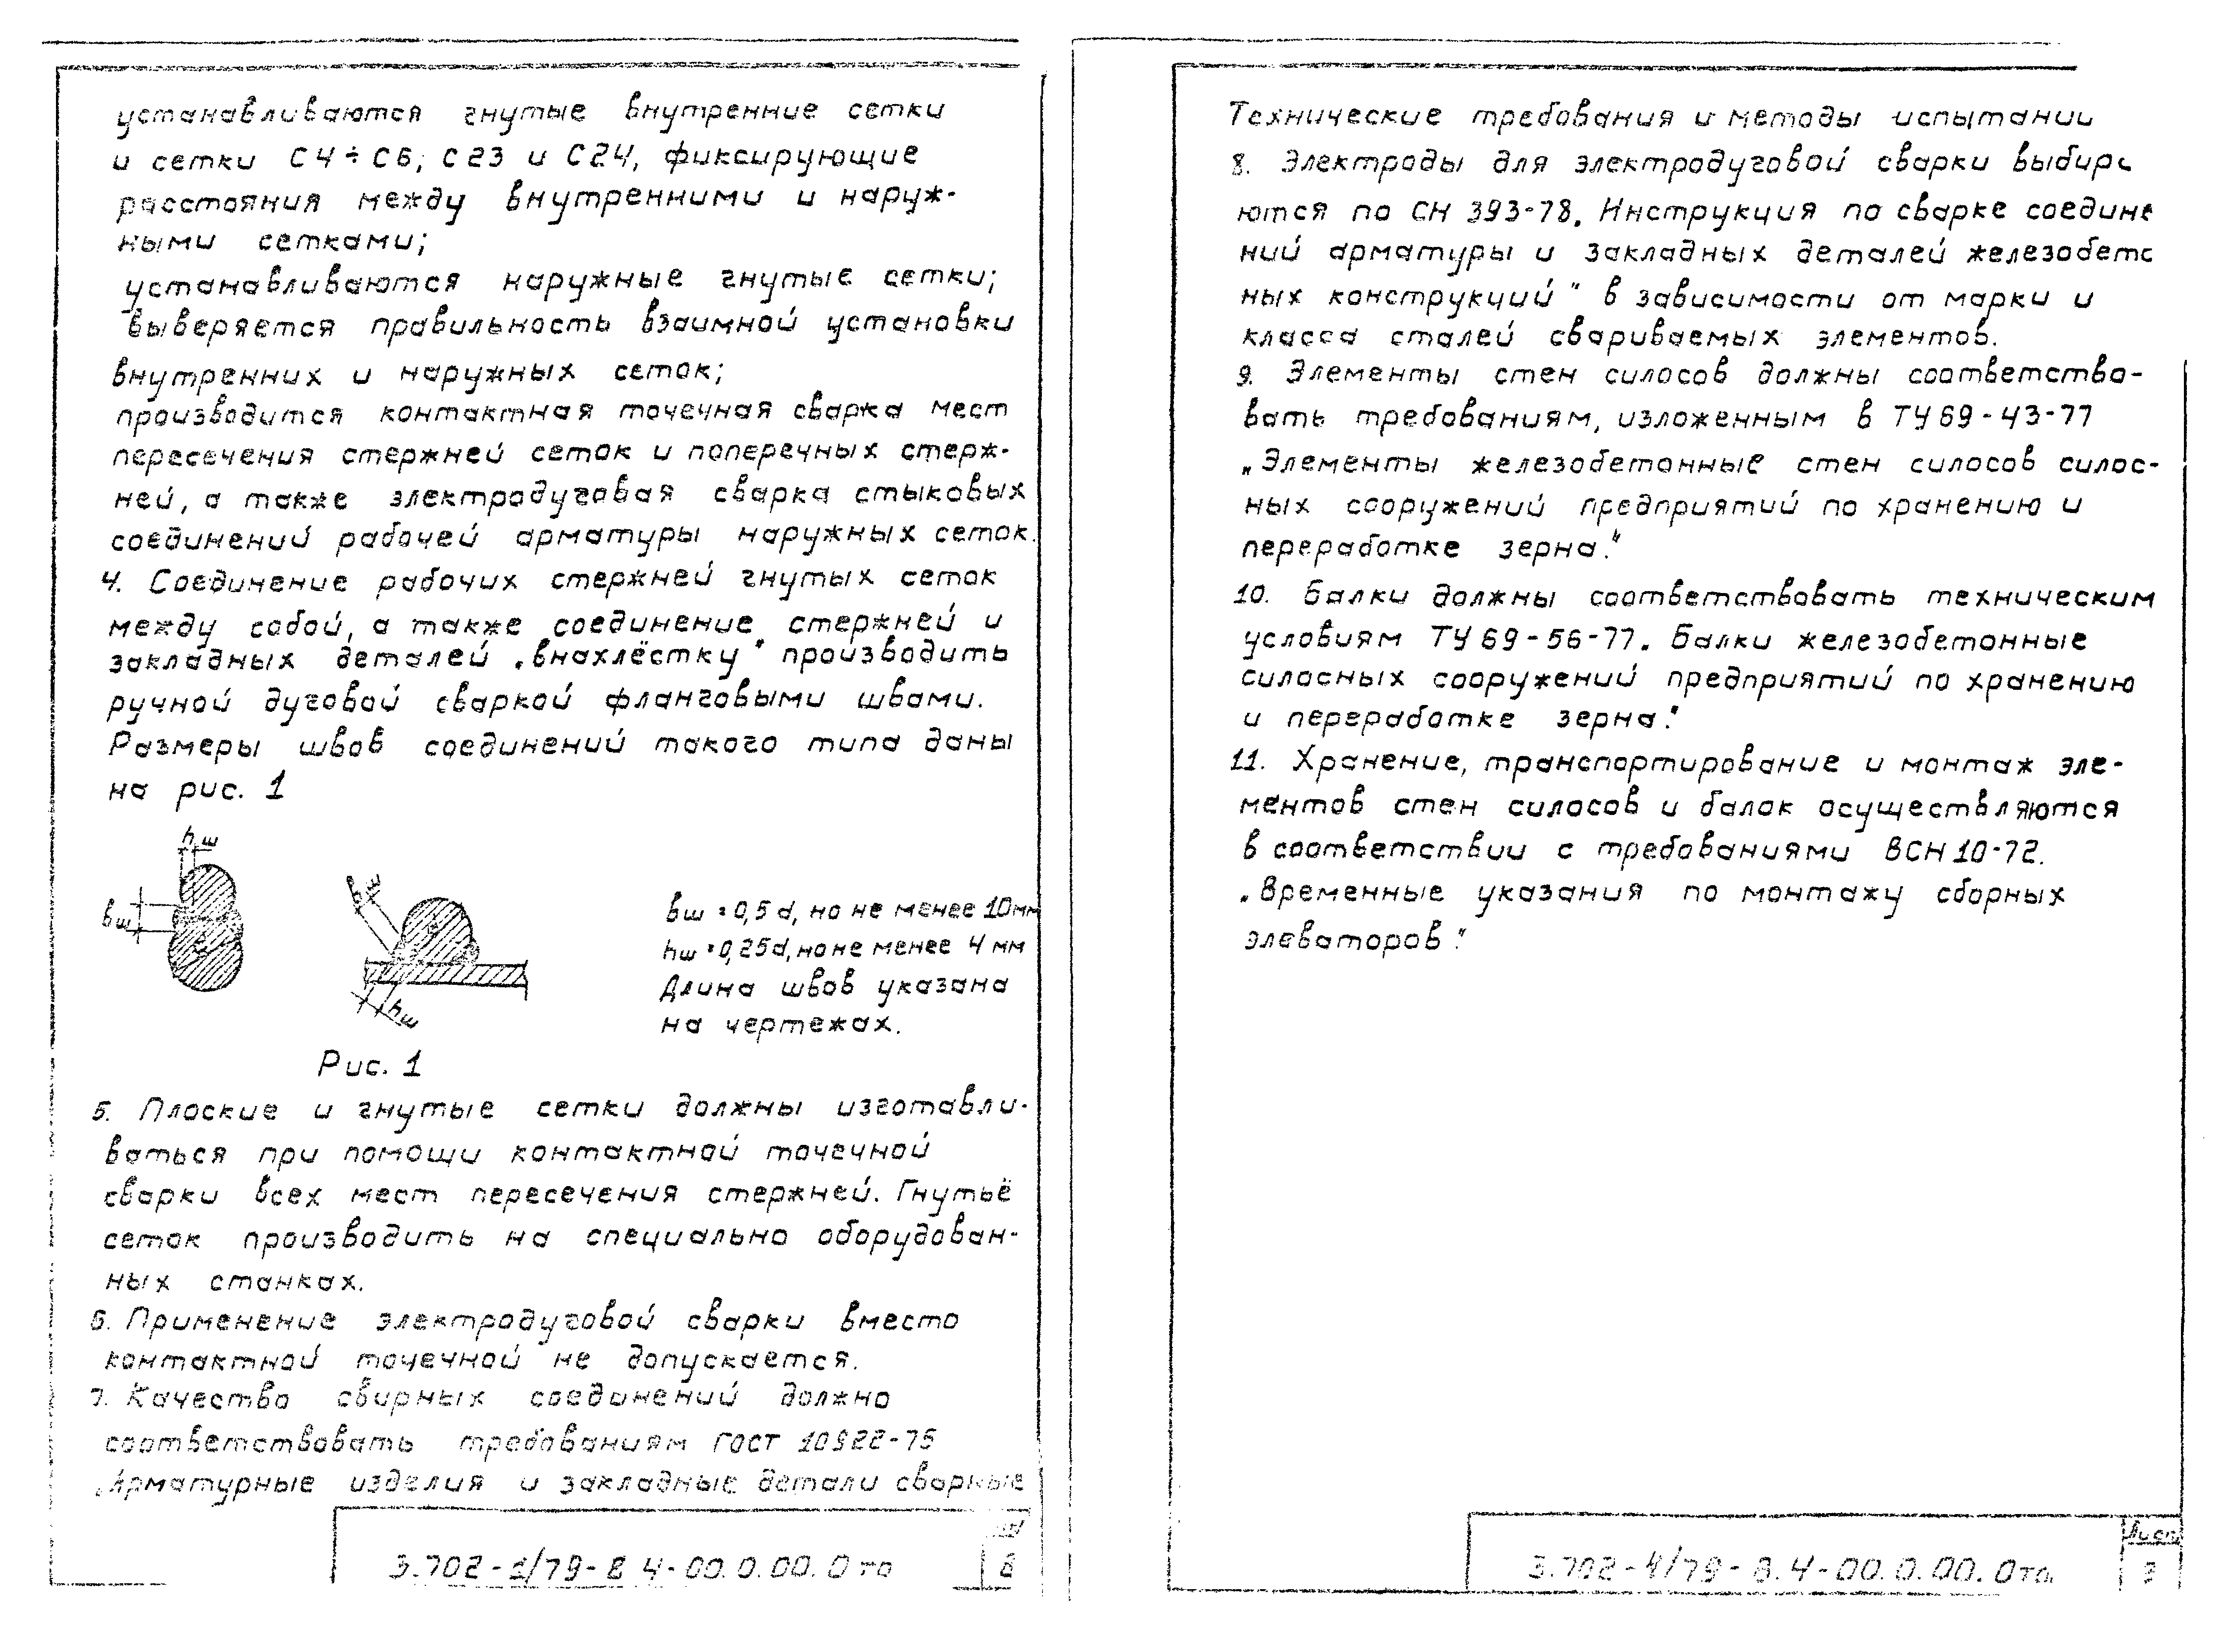 устанавливаются гнутые внутренние сетки
и сетки С4÷С6, С23 и С24, фиксирующие
расстояния между внутренними и наруж-
ными сетками;
устанавливаются наружные гнутые сетки;
выверяется правильность взаимной установки
внутренних и наружных сеток;
производится контактная точечная сварка мест
пересечения стержней сеток и поперечных стерж-
ней, а также электродуговая сварка стыковых
соединений рабочей арматуры наружных сеток.
4. Соединение рабочих стержней гнутых сеток
между собой, а также соединение стержней и
закладных деталей „внахлёстку" производить
ручной дуговой сваркой фланговыми швами.
Размеры швов соединений такого типа даны
на рис. 1
hш
вш
hш
вш = 0,5 d, но не менее 10мм
hш = 0,25d, но не менее 4 мм
Длина швов указана
на чертежах.
Рис. 1
5. Плоские и гнутые сетки должны изготавли-
ваться при помощи контактной точечной
сварки всех мест пересечения стержней. Гнутьё
сеток производить на специально оборудован-
ных станках.
6. Применение электродуговой сварки вместо
контактной точечной не допускается.
7. Качество свирных соединений должно
соответствовать требованиям ГОСТ 10922-75
„Арматурные изделия и закладные детали сворные
3.702-1/79-В 4-00.0.00.0 то
Технические требования и методы испытании
8. Электроды для электродуговой сварки выбира
ются по СН 393-78. Инструкция по сварке соедине
ний арматуры и закладных деталей железобето
ных конструкций" в зависимости от марки и
класса сталей свариваемых элементов.
9. Элементы стен силосов должны соответство-
вать требованиям, изложенным в ТУ69-43-77
„Элементы железобетонные стен силосов силос-
ных сооружений предприятий по хранению и
переработке зерна."
10. Балки должны соответствовать техническим
условиям ТУ69-56-77. Балки железобетонные
силосных сооружений предприятий по хранению
и переработке зерна."
11. Хранение, транспортирование и монтаж эле-
ментов стен силосов и балок осуществляются
в соответствии с требованиями ВСН10-72.
„Временные указания по монтажу сборных
элеваторов".
3.702-1/79-В.4-00.0.00.0то.
Лист